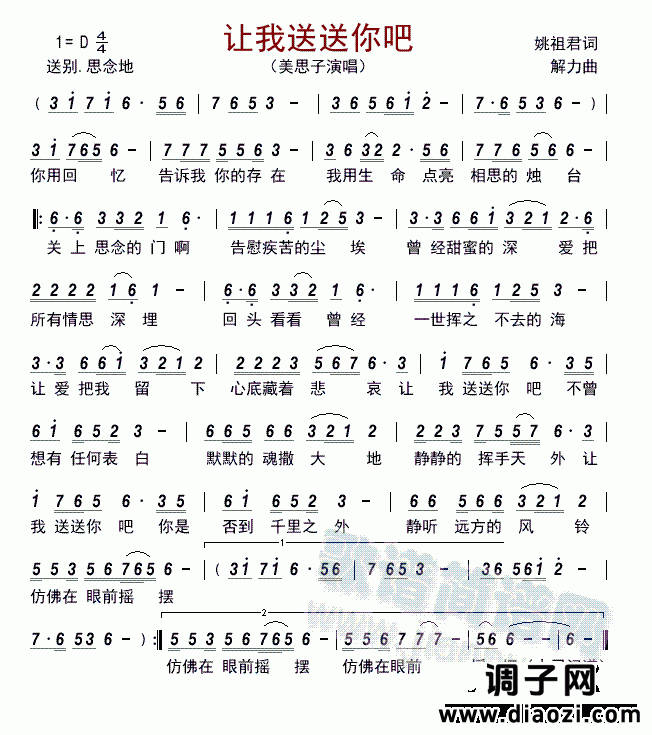 让我送送你吧
1= D 4/4
姚祖君词
送别.思念地
（美思子演唱）
解力曲
( 3 1 7 1 6 · 5 6 | 7 6 5 3 - | 3 6 5 6 1 2 - | 7 · 6 5 3 6 - )
3 1 7 6 5 6 - | 7 7 7 5 5 6 3 - | 3 6 3 2 2 · 5 6 | 7 7 6 5 6 - |
你用回 忆 告诉我 你的存在 我用生 命 点亮 相思的 烛 台
‖: 6 · 6 3 3 2 1 6 | 1 1 1 6 1 2 5 3 - | 3 · 3 6 6 1 3 2 · 6 |
关 上 思念的 门啊 告慰疾苦的尘 埃 曾 经甜蜜的 深 爱把
2 2 2 2 1 6 1 - | 2 2 2 2 3 3 6 · | 1 1 1 6 1 2 5 3 |
所有情思 深 埋 回 头 看看 曾经 一世挥之 不去的 海
3 · 3 6 6 1 3 2 1 2 | 2 2 2 3 5 6 7 6 · 3 | 1 7 6 5 6 · 3 5 |
让 爱 把我 留 下 心底藏着 悲 哀 让 我 送送你 吧 不曾
6 1 6 5 2 3 - | 6 6 5 6 3 2 1 2 | 5 5 5 3 2 3 7 5 5 7 6 · 3 |
想有 任何表 白 默默的 魂撒 大 地 静静的 挥手天 外 让
1 7 6 5 6 · 3 5 | 6 1 6 5 2 3 - | 6 6 5 6 6 3 2 1 2 |
我 送送你 吧 你是 否到 千里之 外 静听 远方的 风 铃
1
5 5 3 5 5 6 7 6 5 6 - | ( 3 1 7 1 6 · 5 6 | 7 6 5 3 - | 3 6 5 6 1 2 - |
仿佛在 眼前摇 摆
歌谱简谱网
2
7 · 6 5 3 6 - ) :‖ 5 5 3 5 5 6 7 6 5 6 - | 5 5 6 7 7 7 - | 5 6 6 - - |
仿佛在 眼前摇 摆 仿佛在眼前
调子网
www.diaozi.com